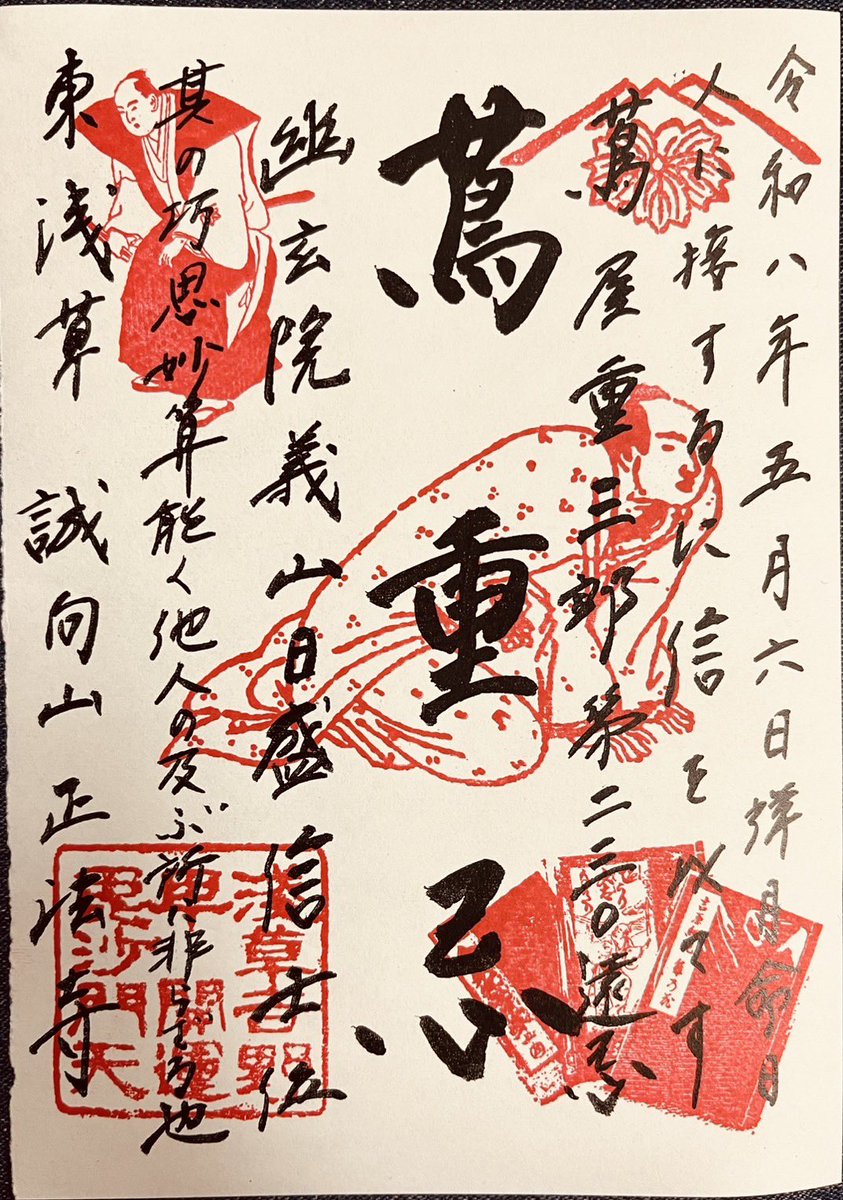 令和八年五月六日祥月命日
人に接するに信を以てす
蔦屋重三郎第二三〇遠忌
蔦重忌
幽玄院義山日盛信士位
其の巧思妙算能く他人の及ぶ所に非らざる也
東浅草 誠向山正法寺
浅草吉野
開運
毘沙門天